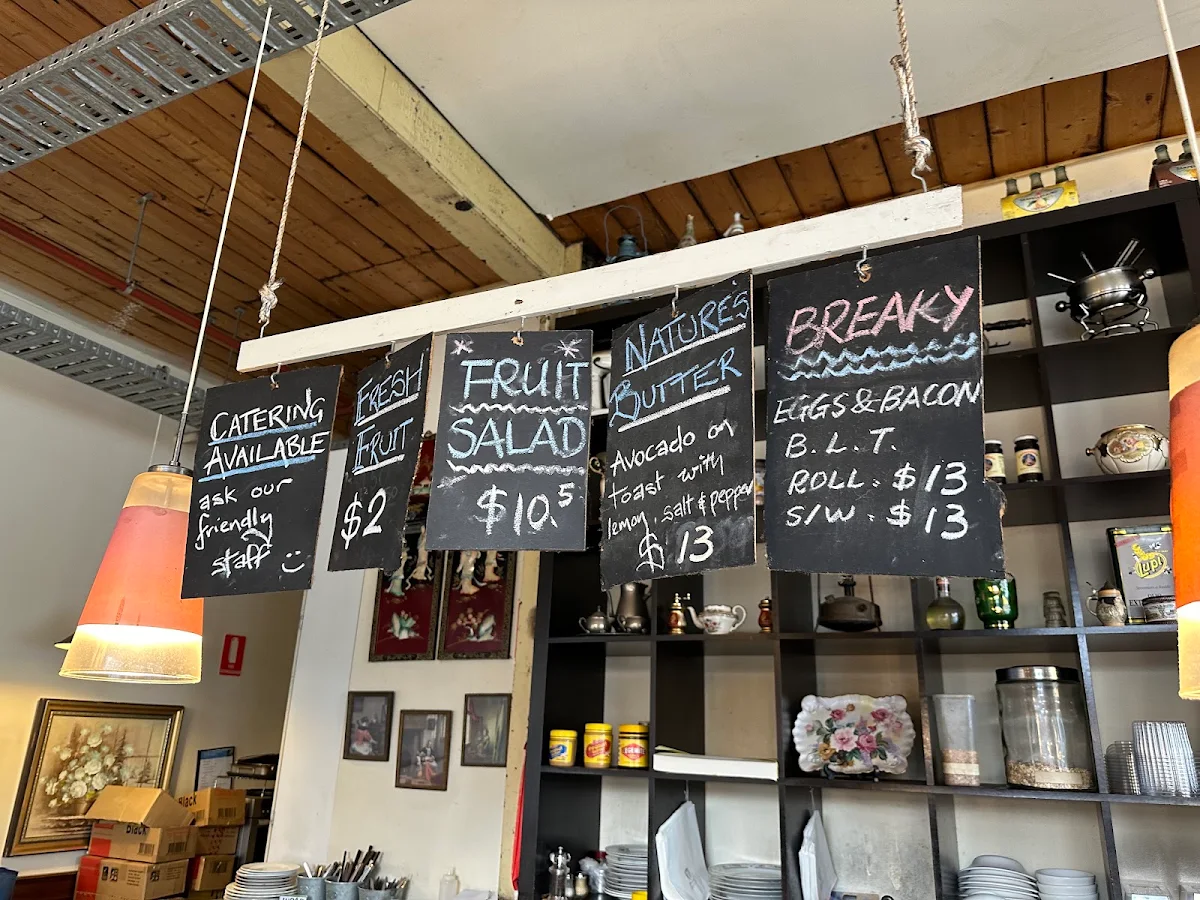 CATERING
AVAILABLE
ask our
friendly
staff :)
FRESH
FRUIT
$2
FRUIT
SALAD
$10.5
NATURE'S
BUTTER
Avocado on
toast with
lemon, salt & pepper
$13
BREAKY
EGGS & BACON
B.L.T.
ROLL . $13
S/W . $13
Black
Black